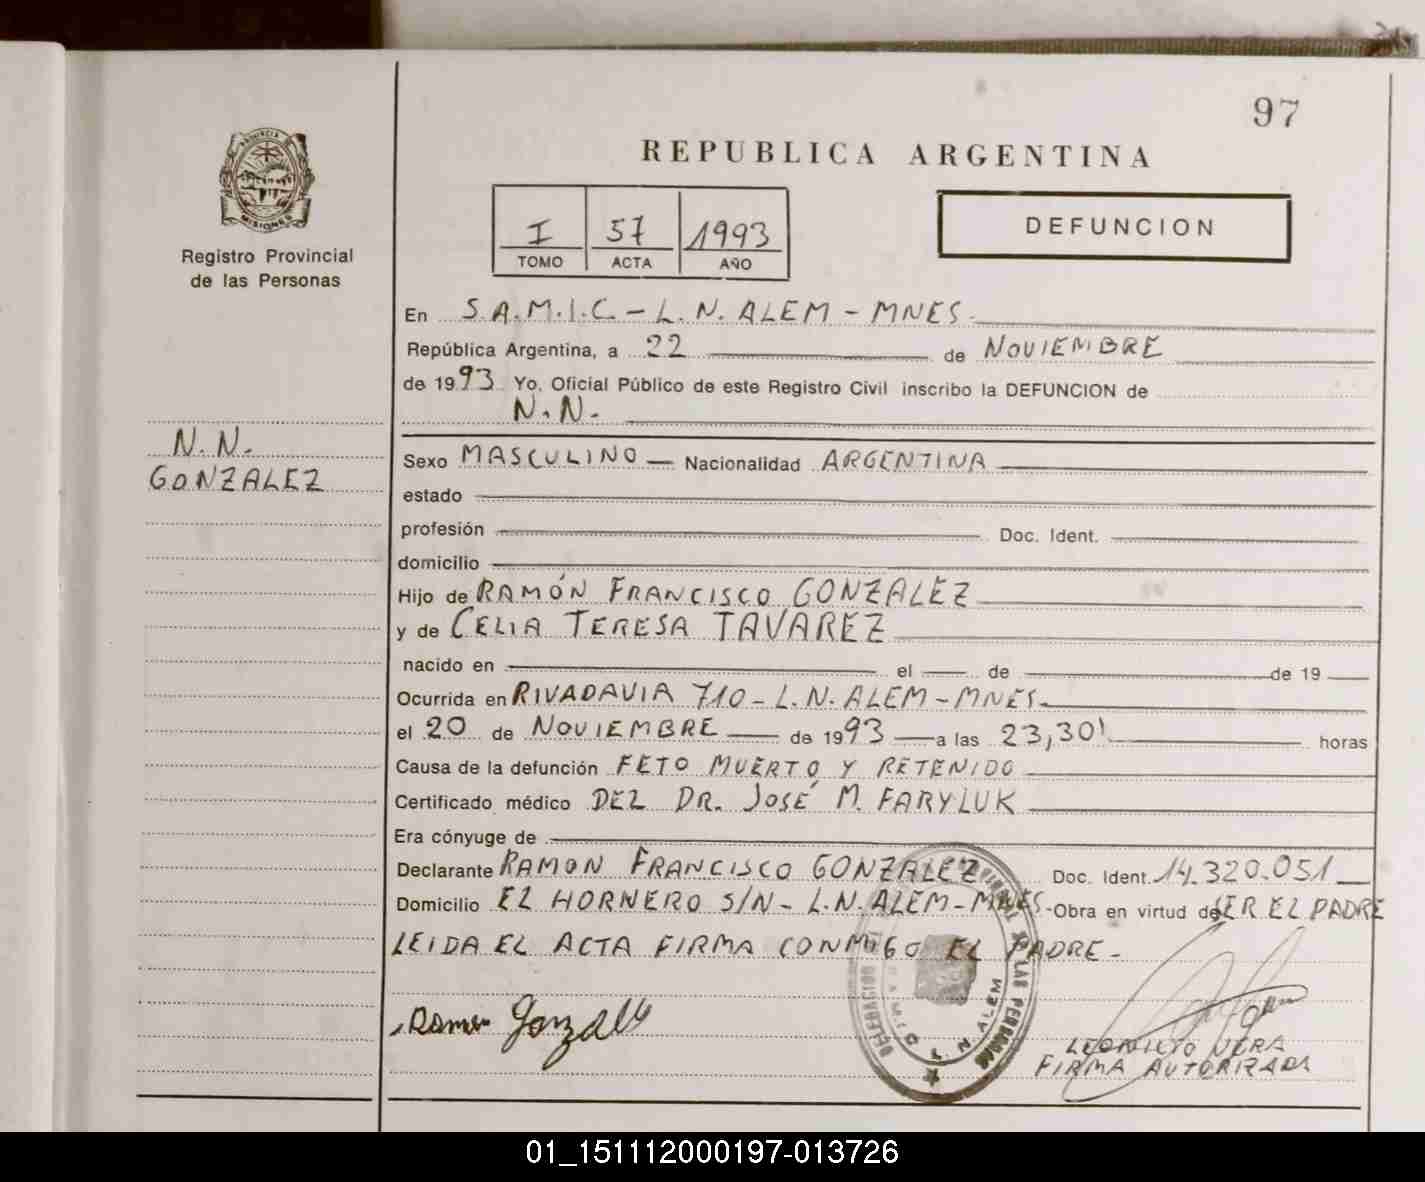 97
REPUBLICA ARGENTINA
PROVINCIA
MISIONES
Registro Provincial
de las Personas
I 57 1993
TOMO ACTA AÑO
DEFUNCION
En S.A.M.I.C. - L. N. ALEM - MNES.
República Argentina, a 22 de NOVIEMBRE
de 1993 Yo, Oficial Público de este Registro Civil inscribo la DEFUNCION de
N.N.
N.N.
GONZALEZ
Sexo MASCULINO Nacionalidad ARGENTINA
estado
profesión Doc. Ident.
domicilio
Hijo de RAMÓN FRANCISCO GONZALEZ
y de CELIA TERESA TAVAREZ
nacido en el de de 19
Ocurrida en RIVADAVIA 710 - L.N. ALEM - MNES.
el 20 de NOVIEMBRE de 1993 a las 23,30' horas
Causa de la defunción FETO MUERTO Y RETENIDO
Certificado médico DEL DR. JOSÉ M. FARYLUK
Era cónyuge de
Declarante RAMON FRANCISCO GONZALEZ Doc. Ident. 14.320.051
Domicilio EL HORNERO S/N - L.N. ALEM - MNES. Obra en virtud de SER EL PADRE
LEIDA EL ACTA FIRMA CONMIGO EL PADRE -
Ramon Gonzalez
DE LAS PERSONAS
DELEGACION
L. N. ALEM
VERA
FIRMA AUTORIZADA
01_151112000197-013726